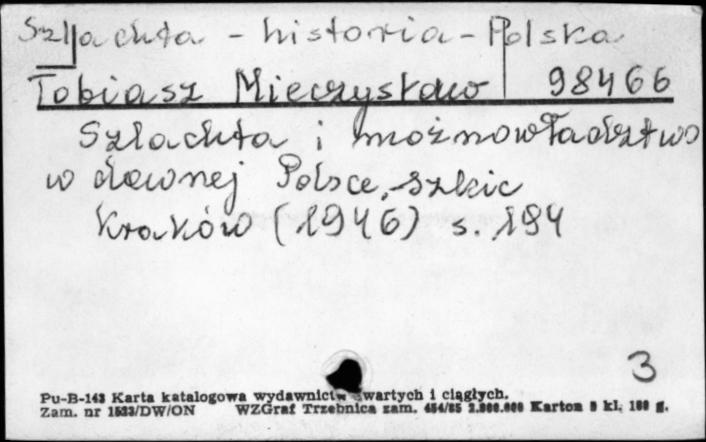 Szlachta - historia - Polska
Tobiasz Mieczysław 98466
Szlachta i możnowładztwo
w dawnej Polsce, szkic
Kraków (1946) s. 194
3
Pu-B-143 Karta katalogowa wydawnictw zwartych i ciągłych.
Zam. nr 1533/DW/ON WZGraf Trzebnica zam. 454/85 2.000.000 Karton kl.